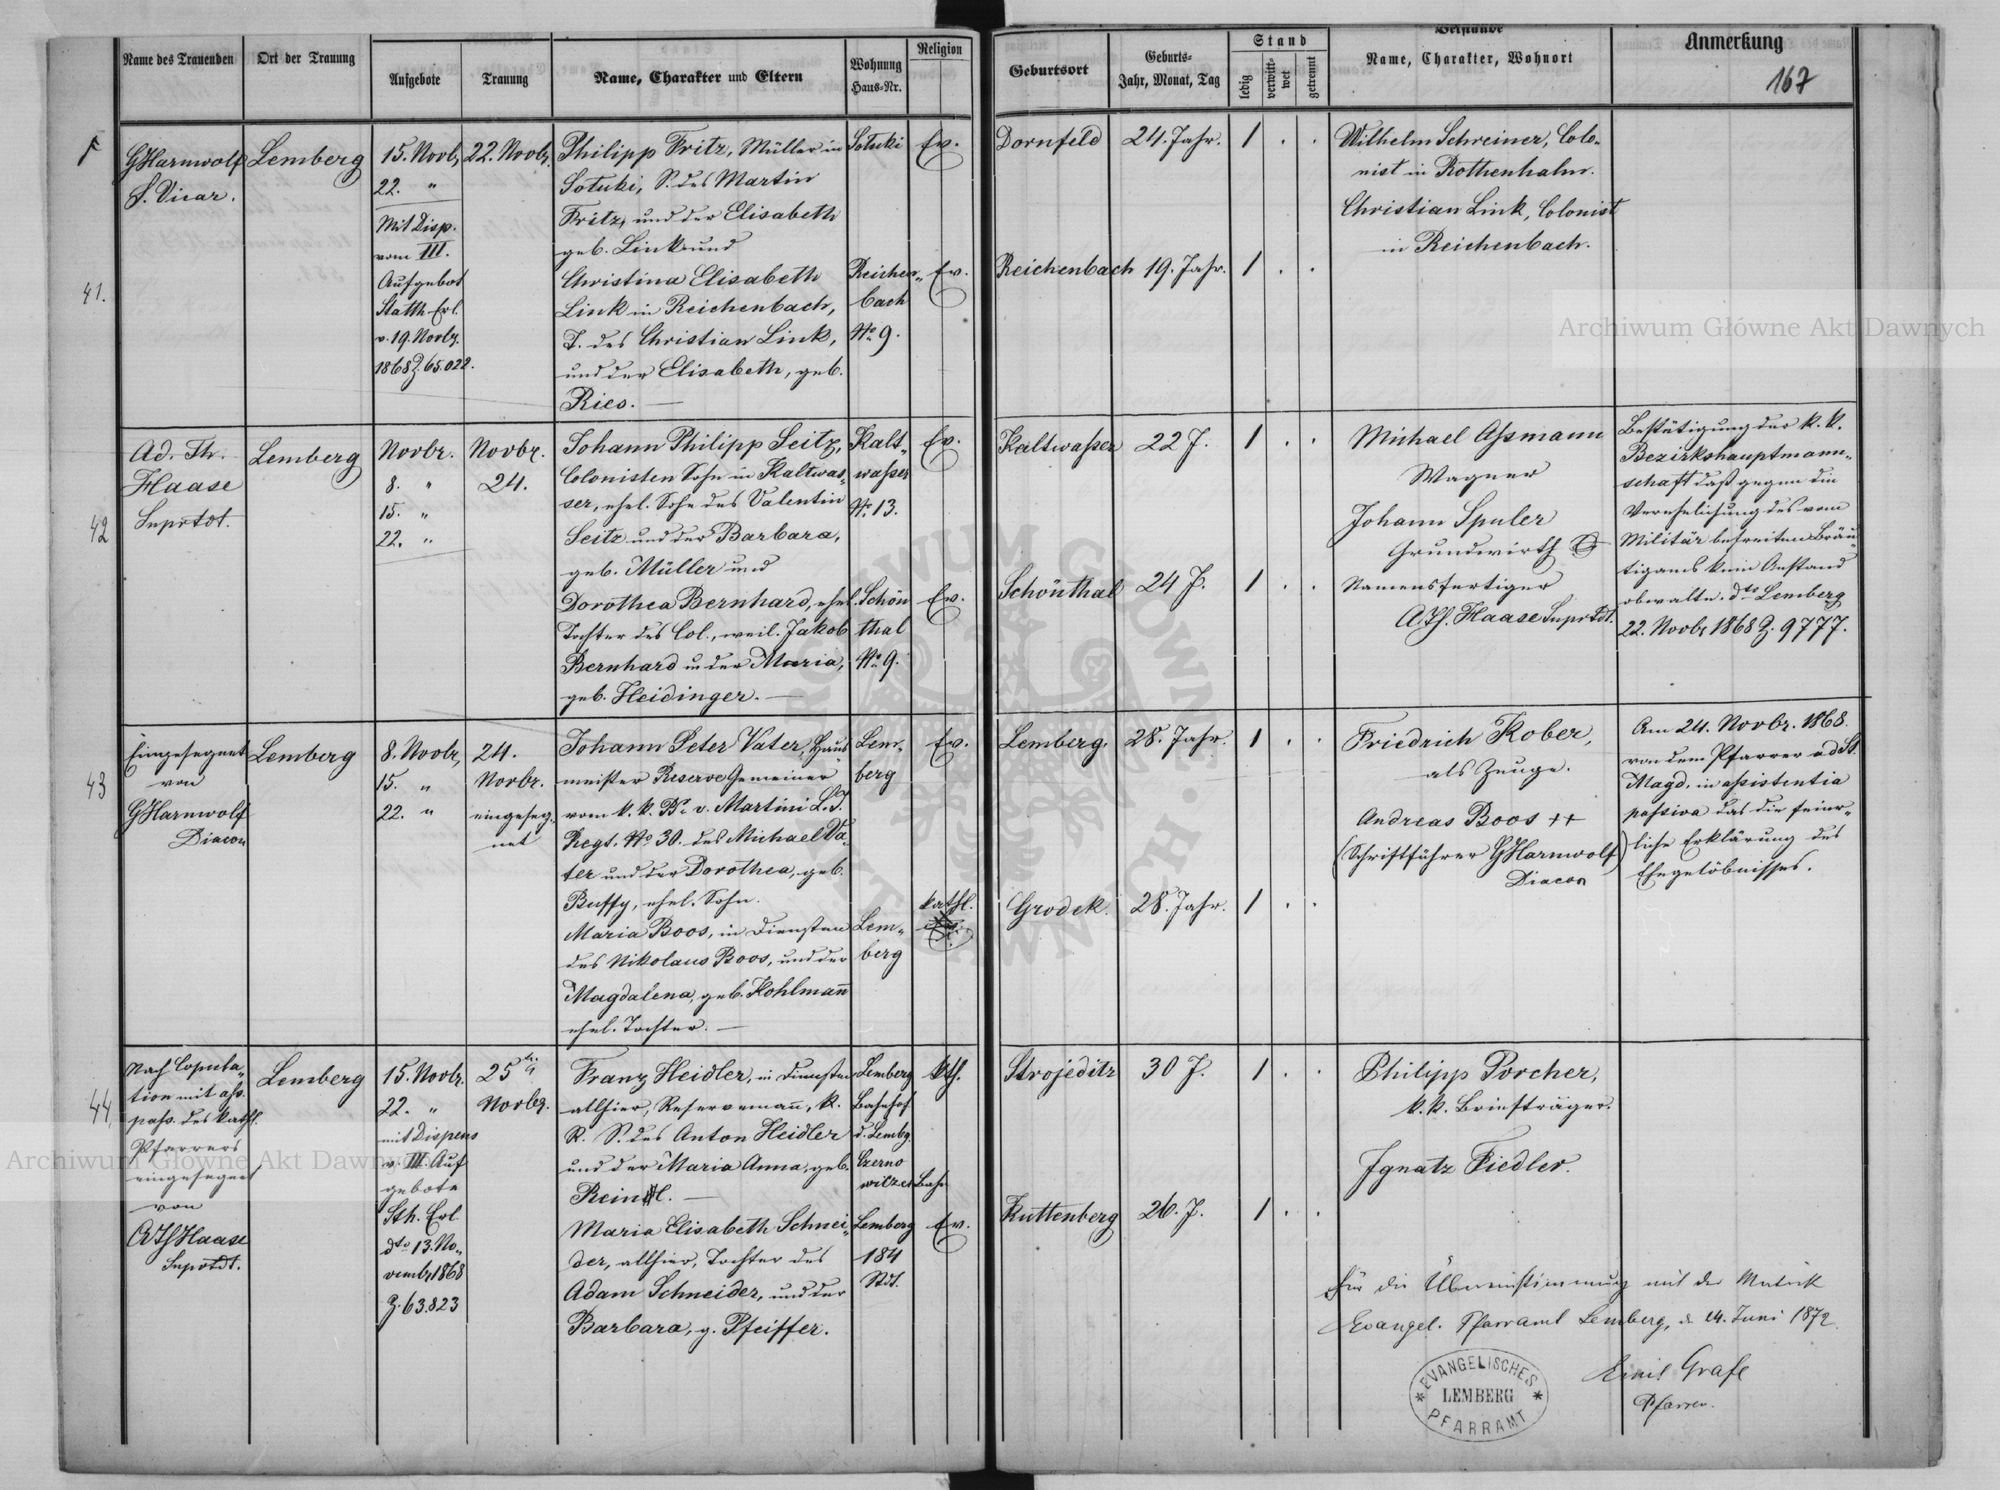 Name des Trauenden
Ort der Trauung
Aufgebote
Trauung
Name, Charakter und Eltern
Wohnung
Haus-Nr.
Religion
Geburtsort
Geburts-
Jahr, Monat, Tag
Stand
ledig
verwitt-
wet
getrennt
Beistände
Name, Charakter, Wohnort
Anmerkung
167
41.
GHarnwolf
S. Vicar.
Lemberg
15. Novb,
22. "
Mit Disp.
vom III.
Aufgebot
Statth. Erl.
v. 19. Novbr.
1868 Z. 65.022.
22. Novbr.
Philipp Fritz, Müller in
Sotuki, S. des Martin
Fritz, und der Elisabeth
geb. Link und
Christina Elisabeth
Link in Reichenbach,
T. des Christian Link,
und der Elisabeth, geb.
Ries. —
Sotuki
Reichen-
bach
No 9.
Ev.
Ev.
Dornfeld
24. Jahr.
1 . .
Reichenbach
19. Jahr.
1 . .
Wilhelm Schreiner, Colo-
nist in Rottenhahn.
Christian Link, Colonist
in Reichenbach.
42
Ad. Th.
Haase
Suprtdt.
Lemberg
Novbr.
8. "
15. "
22. "
Novbr.
24.
Johann Philipp Seitz,
Colonisten Sohn in Kaltwas-
ser, ehel. Sohn des Valentin
Seitz und der Barbara,
geb. Müller und
Dorothea Bernhard, ehel.
Tochter des Col., weil. Jakob
Bernhard u der Maria,
geb. Heidinger. —
Kalt-
waßer
No 13.
Schön
thal
No 9.
Ev.
Ev.
Kaltwaßer
22 J.
1 . .
Schönthal
24 J.
1 . .
Michael Aßmann
Wagner
Johann Spuler
Grundwirth
Namensfertiger
ATh. Haase Suprtdt.
Bestätigung der k. k.
Bezirkshauptmann-
schaft daß gegen die
Verehelichung des vom
Militär befreiten Bräu-
tigams kein Anstand
obwalte. dto Lemberg
22. Novbr 1868 Z. 9777.
43
Eingesegnet
von
GHarnwolf
Diacon
Lemberg
8. Novbr,
15. "
22. "
24.
Novbr.
eingeseg-
net
Johann Peter Vater, Haus
meister Reserve Gemeiner
vom k. k. Br v. Martini L. I.
Regt. No 30. des Michael Va-
ter und der Dorothea, geb.
Buffy, ehel. Sohn.
Maria Boos, in Diensten
des Nikolaus Boos, und der
Magdalena, geb. Kohlmann
ehel. Tochter. —
Lem-
berg
Lem-
berg
Ev.
kathl.
Lemberg.
28. Jahr.
1 . .
Grodek.
28. Jahr.
1 . .
Friedrich Kober,
als Zeuge.
Andreas Boos ++
(Schriftführer GHarnwolf)
Diacon
Am 24. Novbr. 1868.
von dem Pfarrer a d St.
Magd. in assistentia
passiva das die feier-
liche Erklärung des
Ehegelöbnisses.
44.
Nach Copula-
tion mit ass.
pass. des kathl.
Pfarrers
eingesegnet
von
AThHaase
Suprtdt.
Lemberg
15. Novbr.
22. "
mit Dispens
v. III. Auf
gebote
Sth. Erl
dto 13. No-
vembr 1868
Z. 63.823
25
Novbr.
Franz Heidler, in Diensten
allhier, Reservemann, k.
R. S. des Anton Heidler
und der Maria Anna, geb.
Reinl. —
Maria Elisabeth Schnei-
der, allhier, Tochter des
Adam Schneider, und der
Barbara, g. Pfeiffer.
Lemberg
Bahnhof
d. Lembg.
Czerno
witzer Bahn
Lemberg
184
Stdt.
kth.
Ev.
Strojeditz
30 J.
1 . .
Kuttenberg
26. J.
1 . .
Philipp Porcher,
k. k. Briefträger.
Ignatz Fiedler.
Für die Übereinstimmung mit der Matrik
Evangel. Pfarramt Lemberg, d. 24. Juni 1872
Emil Grafe
Pfarrer.
EVANGELISCHES
LEMBERG
PFARRAMT
Archiwum Główne Akt Dawnych
Archiwum Główne Akt Dawnych
ARCHIWUM GŁÓWNE AKT DAWNYCH